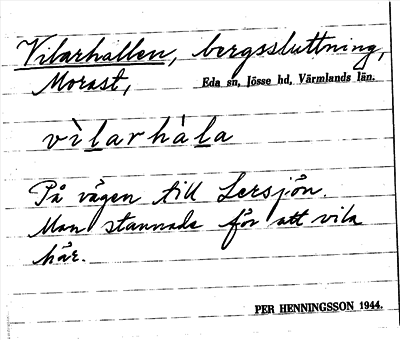 Vilarhallen, bergssluttning,
Morast, Eda sn, Jösse hd, Värmlands län.
vìlarhàla
På vägen till Lersjön.
Man stannade för att vila
här.
PER HENNINGSSON 1944.